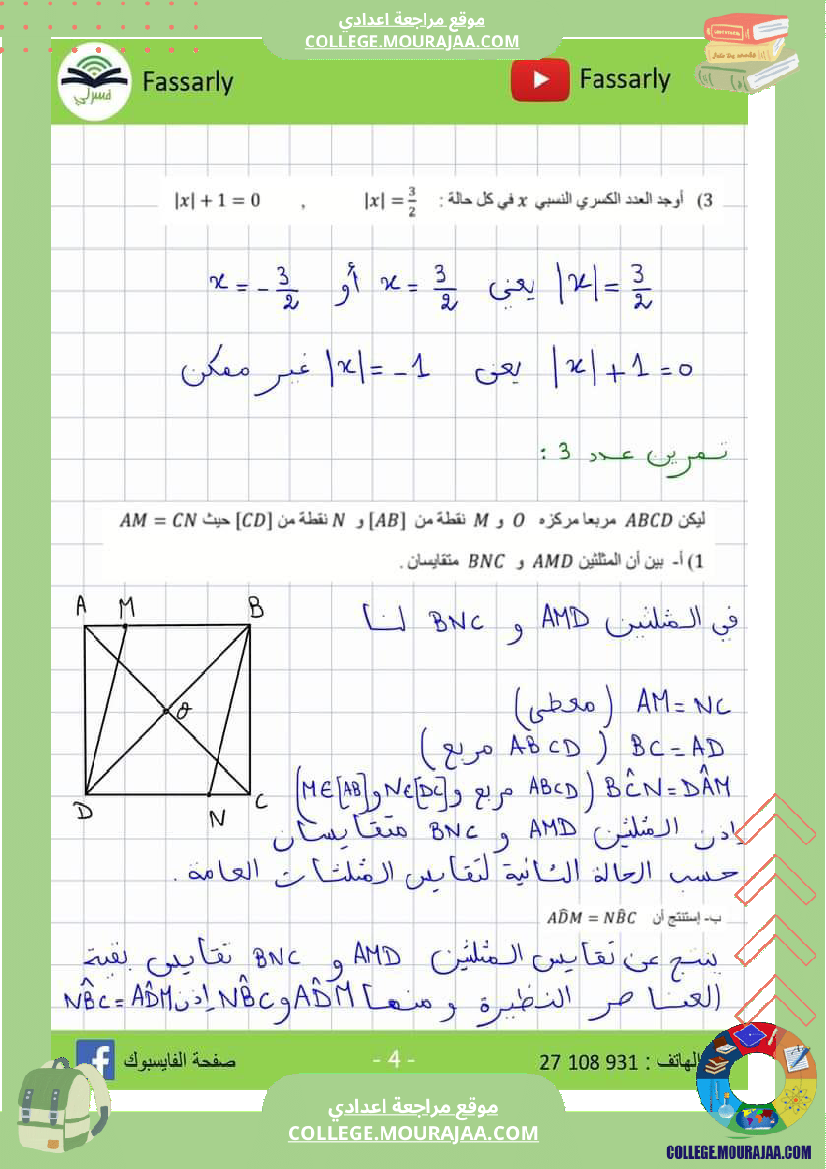 موقع مراجعة اعدادي
COLLEGE.MOURAJAA.COM
فسرلي
Fassarly
Fassarly
3) أوجد العدد الكسري النسبي x في كل حالة : |x| = 3/2 , |x| + 1 = 0
|x| = 3/2 يعني x = 3/2 أو x = - 3/2
|x| + 1 = 0 يعني |x| = -1 غير ممكن
تمرين عدد 3 :
ليكن ABCD مربعا مركزه O و M نقطة من [AB] و N نقطة من [CD] حيث AM = CN
1) أ- بين أن المثلثين AMD و BNC متقايسان .
A M B
O
D N C
في المثلثين AMD و BNC لنا
AM = NC (معطى)
BC = AD (ABCD مربع)
BĈN = DÂM (ABCD مربع و N∈[DC] و M∈[AB])
إذن المثلثين AMD و BNC متقايسان
حسب الحالة الثانية لتقايس المثلثات العامة .
ب- إستنتج أن AD̂M = NB̂C
ينتج عن تقايس المثلثين AMD و BNC تقايس بقية
العناصر النظيرة و منها AD̂M و NB̂C إذن NB̂C = AD̂M
صفحة الفايسبوك
- 4 -
الهاتف : 27 108 931
موقع مراجعة اعدادي
COLLEGE.MOURAJAA.COM
COLLEGE.MOURAJAA.COM